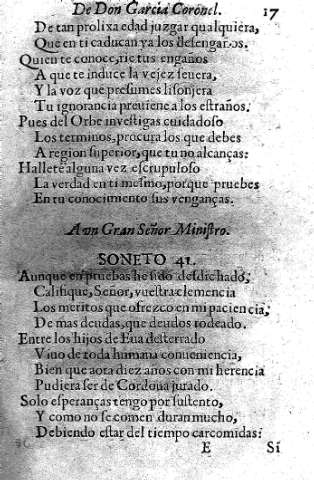 De Don Garcia Coronel. 17
De tan prolixa edad juzgar qualquiera,
Que en ti caducan ya los desengaños.
Quien te conoce, rie tus engaños
A que te induce la vejez seuera,
Y la voz que presumes lisonjera
Tu ignorancia preuiene a los estraños.
Pues del Orbe inuestigas cuidadoso
Los terminos, procura los que debes
A region superior, que tu no alcanças:
Hallete alguna vez escrupuloso
La verdad en ti mesmo, porque pruebes
En tu conocimento sus venganças.
A un Gran Señor Ministro.
SONETO 41.
Aunque en pruebas he sido desdichado,
Califique, Señor, vuestra clemencia
Los meritos que ofrezco en mi paciencia,
De mas deudas, que deudos rodeado.
Entre los hijos de Eua desterrado
Viuo de toda humana conueniencia,
Bien que aora diez años con mi herencia
Pudiera ser de Cordoua jurado.
Solo esperanças tengo por sustento,
Y como no se comen duran mucho,
Debiendo estar del tiempo carcomidas:
E Si